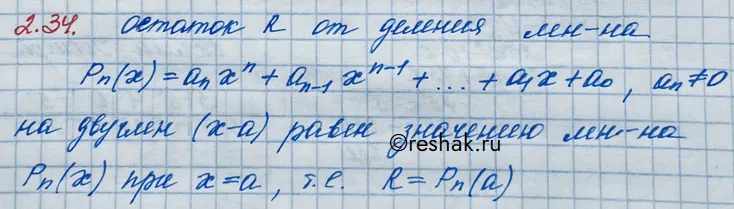 2.34. Остаток R от деления мн-на
Pn(x) = aₙxⁿ + aₙ₋₁xⁿ⁻¹ + ... + a₁x + a₀, aₙ ≠ 0
на двучлен (x-a) равен значению мн-на
Pn(x) при x=a, т.е. R = Pn(a)
©reshak.ru